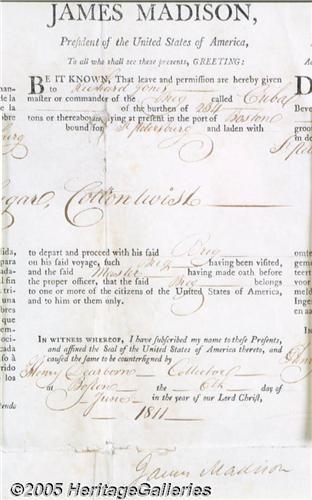 JAMES MADISON,
President of the United States of America,
To all who shall see these presents, GREETING:
BE IT KNOWN, That leave and permission are hereby given
to Richard Jones
master or commander of the Brig called Cuba
of the burthen of 284
tons or thereabouts, lying at present in the port of Boston
bound for St Petersburg and laden with
Sugar, Cotton twist
to depart and proceed with his said Brig
on his said voyage, such Brig having been visited,
and the said Master having made oath before
the proper officer, that the said Brig belongs
to one or more of the citizens of the United States of America,
and to him or them only.
IN WITNESS WHEREOF, I have subscribed my name to these Presents,
and affixed the Seal of the United States of America thereto, and
caused the same to be countersigned by
Henry Dearborn Collector
at Boston the 6th day of
June in the year of our Lord Christ,
1811
James Madison
©2005 HeritageGalleries